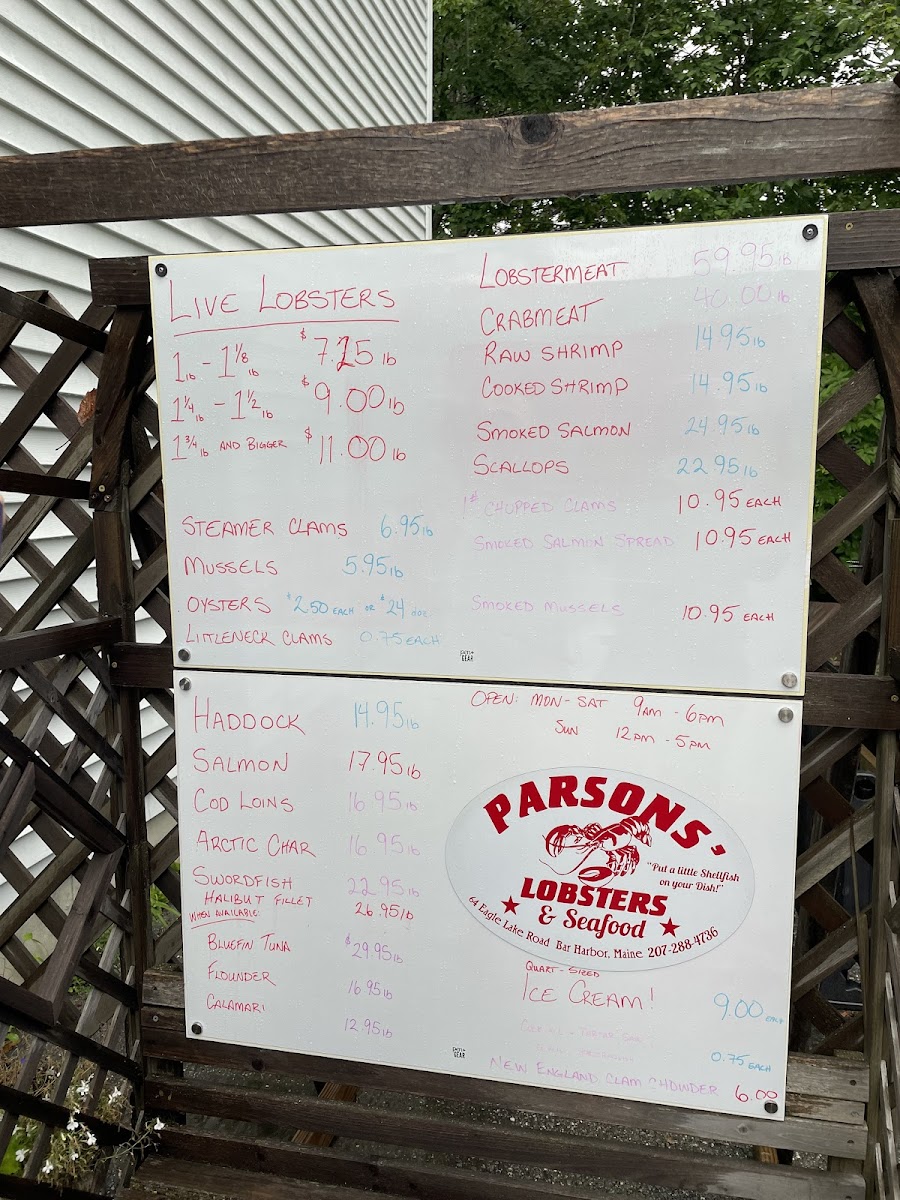 LIVE LOBSTERS
1 lb - 1 1/8 lb $7.25 lb
1 1/4 lb - 1 1/2 lb $9.00 lb
1 3/4 lb AND BIGGER $11.00 lb
STEAMER CLAMS 6.95 lb
MUSSELS 5.95 lb
OYSTERS $2.50 EACH OR $24 doz
LITLENECK CLAMS 0.75 EACH
LOBSTERMEAT 59.95 lb
CRABMEAT 40.00 lb
RAW SHRIMP 14.95 lb
COOKED SHRIMP 14.95 lb
SMOKED SALMON 24.95 lb
SCALLOPS 22.95 lb
1# CHOPPED CLAMS 10.95 EACH
SMOKED SALMON SPREAD 10.95 EACH
SMOKED MUSSELS 10.95 EACH
GEAR
HADDOCK 14.95 lb
SALMON 17.95 lb
COD LOINS 16.95 lb
ARCTIC CHAR 16.95 lb
SWORDFISH 22.95 lb
HALIBUT FILLET 26.95 lb
WHEN AVAILABLE:
BLUEFIN TUNA $29.95 lb
FLOUNDER 16.95 lb
CALAMARI 12.95 lb
OPEN: MON-SAT 9AM - 6PM
SUN 12PM - 5PM
PARSONS'
"Put a little Shellfish
on your Dish!"
LOBSTERS
& Seafood
64 Eagle Lake Road Bar Harbor, Maine 207-288-4736
QUART-SIZED
ICE CREAM! 9.00 EACH
0.75 EACH
NEW ENGLAND CLAM CHOWDER 6.00
GEAR